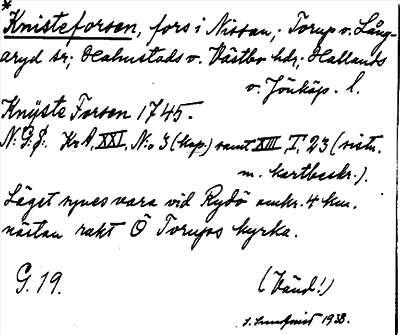 * Knisteforsen, fors i Nissan, Torup o. Lång-
aryd sr; Halmstads o. Västbo hdr; Hallands
o. Jönköp. l.
Knÿste Forsen 1745.
N: G. g: Kr.A, XXI, N:o 3 (kop.) samt XIII I. 23 (sistn.
m. kartbeskr.).
Läget synes vara vid Rydö omkr. 4 km.
nästan rakt Ö Torups kyrka.
G. 19.
(Vänd!)
1938.